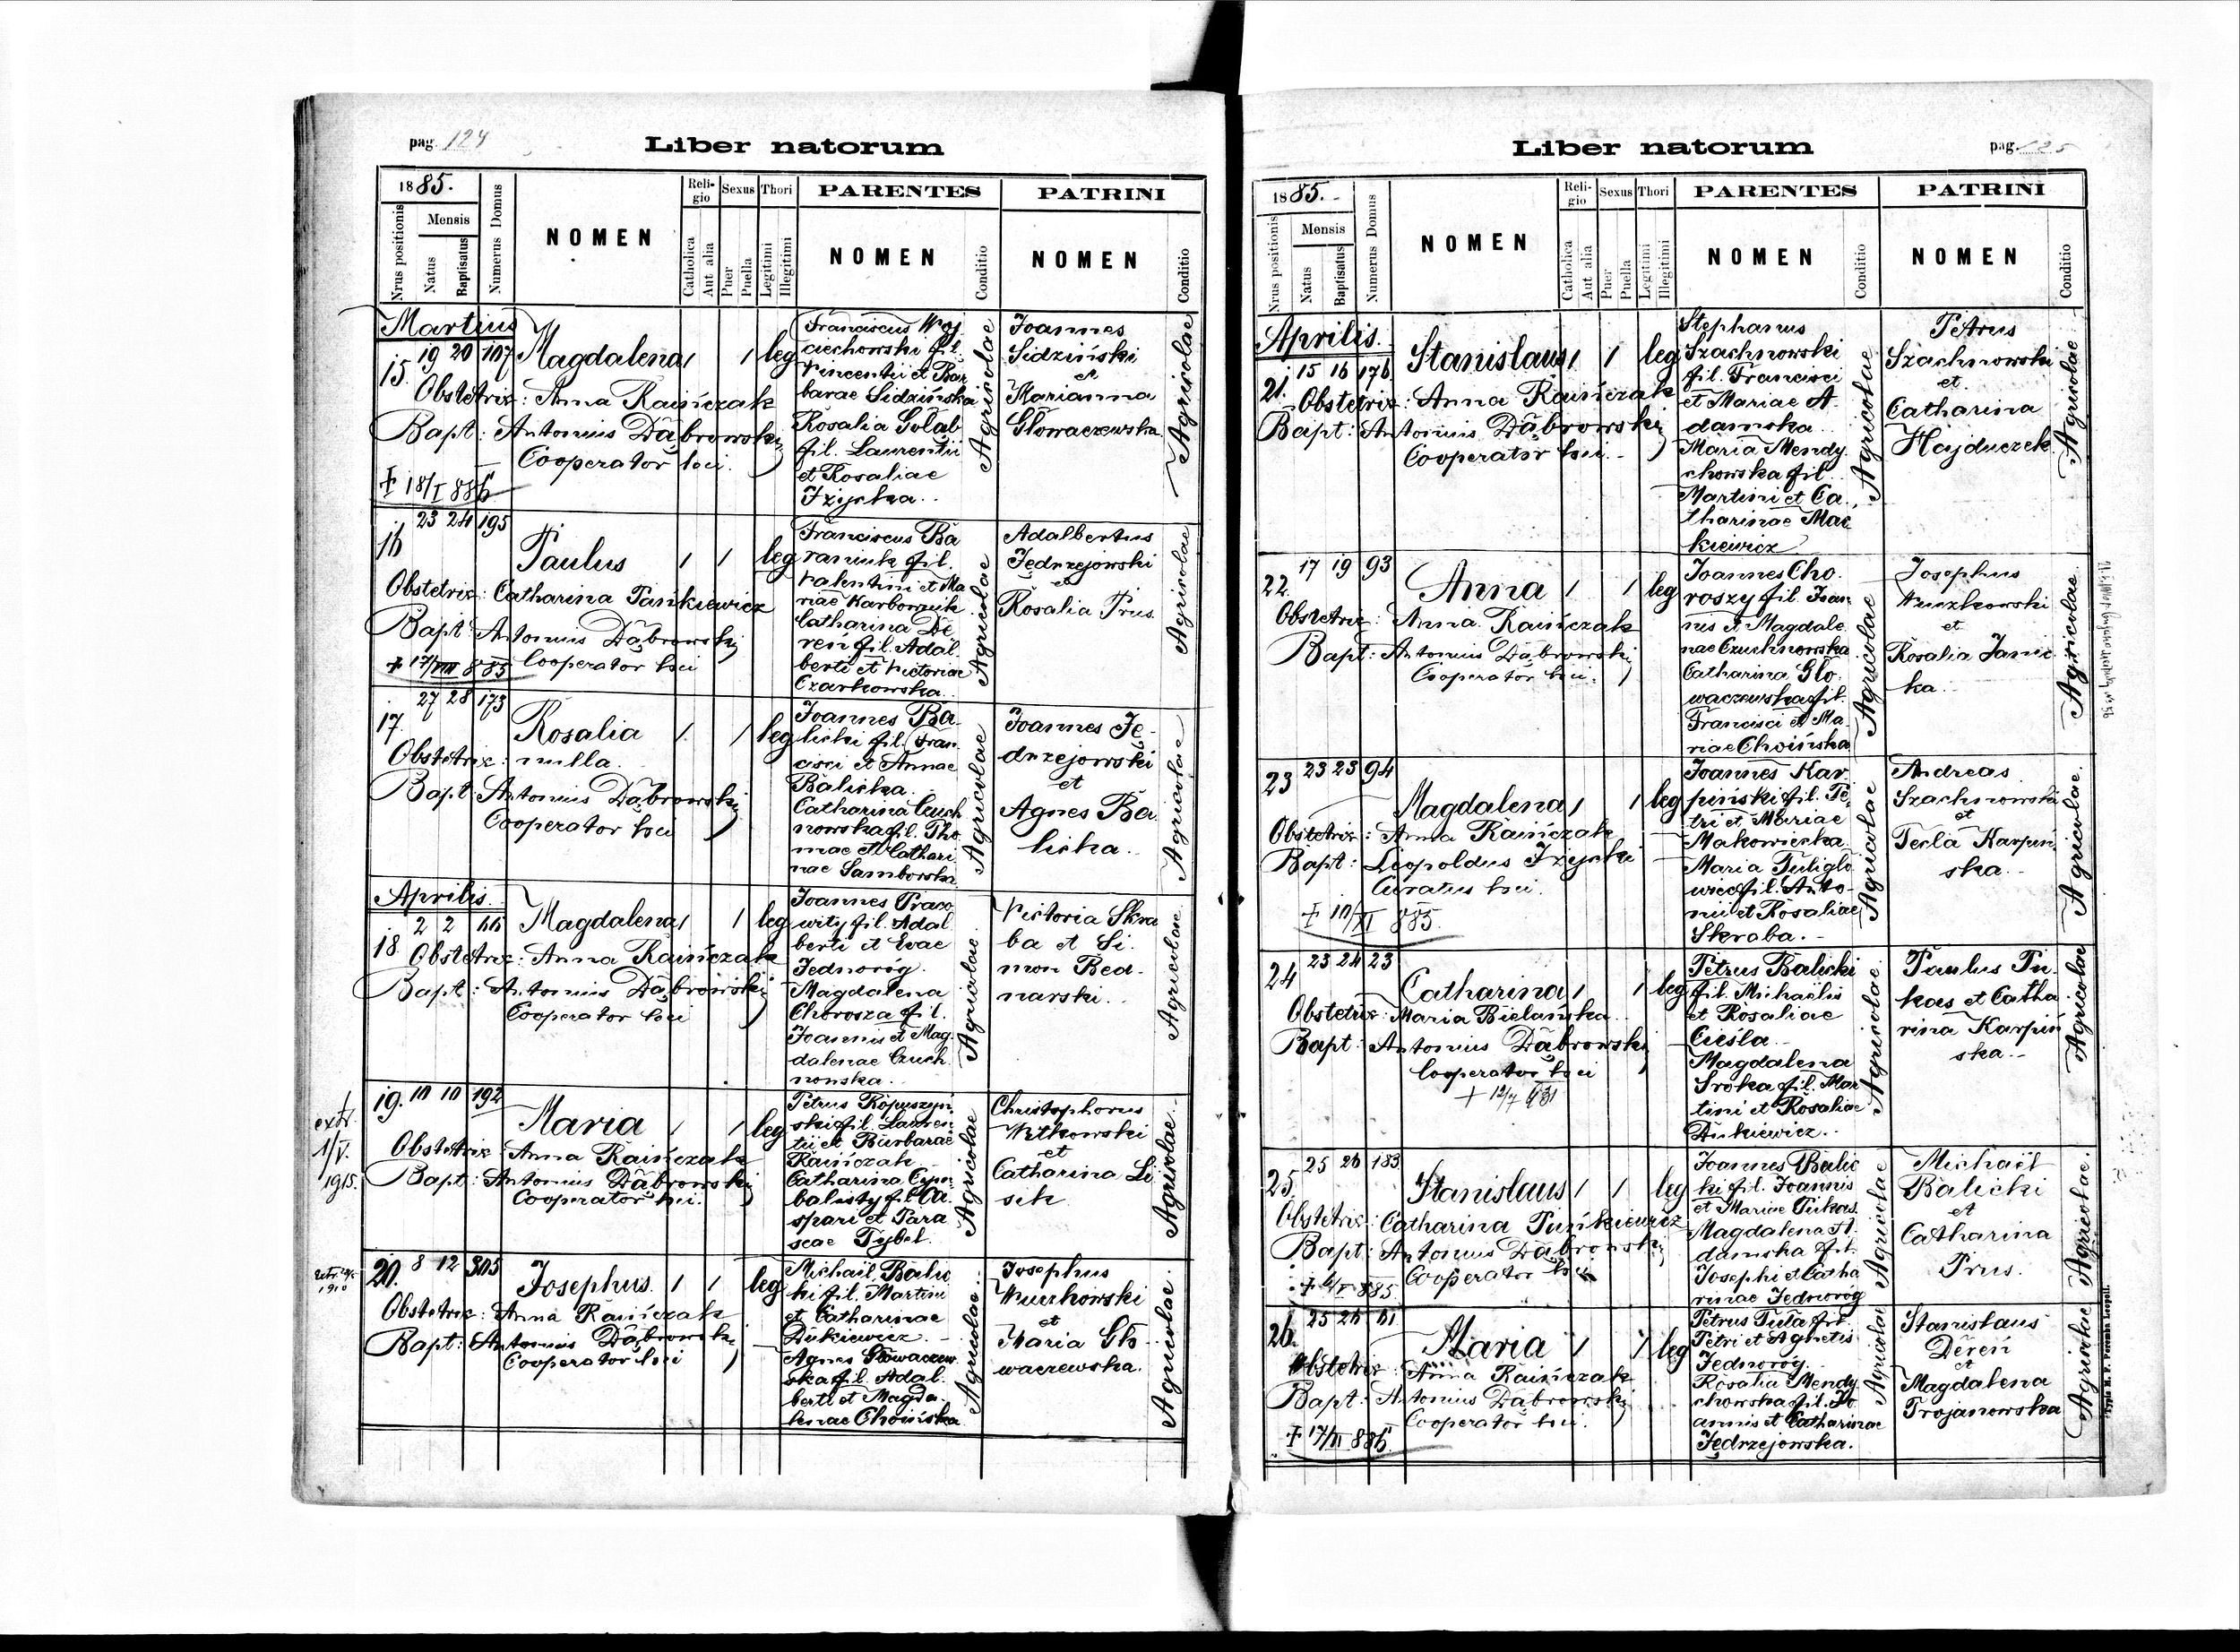 pag. 124
Liber natorum
1885.
Nrus positionis
Mensis
Natus
Baptisatus
Numerus Domus
NOMEN
Religio
Catholica
Aut alia
Sexus
Puer
Puella
Thori
Legitimi
Illegitimi
PARENTES
NOMEN
Conditio
PATRINI
NOMEN
Conditio
Martius
15. 19 20 107 Magdalena 1 1 leg
Obstetrix: Anna Raińczak
Bapt: Antonius Dąbrowski
Cooperator loci.
+ 18/I 886
Franciscus Woj
ciechowski fil.
Vincentii et Bar
barae Sidzińska
Rosalia Gołąb
fil. Laurentii
et Rosaliae
Iżycka.
Agricolae
Joannes
Sidziński
et
Marianna
Głowaczewska
Agricolae
16 23 24 195 Paulus 1 1 leg
Obstetrix: Catharina Pańkiewicz
Bapt: Antonius Dąbrowski
Cooperator loci
+ 17/VIII 885
Franciscus Ba
raniuk fil.
Valentini et Ma
riae Karbownik
Catharina De
reń fil. Adal
berti et Victoriae
Czarkowska.
Agricolae
Adalbertus
Jędrzejowski
et
Rosalia Prus.
Agricolae
17. 27 28 173 Rosalia 1 1 leg
Obstetrix: nulla.
Bapt: Antonius Dąbrowski
Cooperator loci
Joannes Ba
licki fil. Fran
cisci et Annae
Balicka.
Catharina Czuch
nowska fil. Tho
mae et Cathari
nae Samborska
Agricolae
Joannes Ję-
drzejowski
et
Agnes Ba
licka.
Agricolae
Aprilis.
18. 2 2 66 Magdalena 1 1 leg
Obstetrix: Anna Raińczak
Bapt: Antonius Dąbrowski
Cooperator loci
Joannes Praco
wity fil. Adal
berti et Evae
Jednoróg.
Magdalena
Chorosza fil.
Joannis et Mag
dalenae Czuch
nowska.
Agricolae
Victoria Skra
ba et Si.
mon Bed-
narski.
Agricolae
extr.
1/V.
1915.
19. 10 10 192 Maria 1 1 leg
Obstetrix Anna Raińczak
Bapt: Antonius Dąbrowski
Cooperator loci.
Petrus Ropuszyń
ski fil. Lauren
tii et Barbarae
Raińczak
Catharina Cym
balisty fil. Ca
spari et Para
sceae Tybel.
Agricolae
Christophorus
Witkowski
et
Catharina Li
sik
Agricolae
1910
20. 8 12 305 Josephus. 1 1 leg
Obstetrix: Anna Raińczak
Bapt: Antonius Dąbrowski
Cooperator loci
Michaël Balic
ki fil. Martini
et Catharinae
Dukiewicz.
Agnes Głowaczew
ska fil. Adal.
berti et Magda.
lenae Choińska
Agricolae
Josephus
Wuszkowski
et
Maria Gło
waczewska.
Agricolae
Liber natorum
pag. 125
1885.
Nrus positionis
Mensis
Natus
Baptisatus
Numerus Domus
NOMEN
Religio
Catholica
Aut alia
Sexus
Puer
Puella
Thori
Legitimi
Illegitimi
PARENTES
NOMEN
Conditio
PATRINI
NOMEN
Conditio
Aprilis.
21. 15 16 176 Stanislaus 1 1 leg
Obstetrix: Anna Raińczak
Bapt: Antonius Dąbrowski
Cooperator loci.
Stephanus
Szachnowski
fil. Francisci
et Mariae A-
damska.
Maria Mendy
chowska fil.
Martini et Ca
tharinae Mac
kiewicz
Agricolae
Petrus
Szachnowski
et
Catharina
Hajduczek.
Agricolae
22. 17 19 93 Anna 1 1 leg
Obstetrix: Anna Raińczak
Bapt: Antonius Dąbrowski
Cooperator loci.
Joannes Cho.
roszy fil. Joan
nis et Magdale
nae Czuchnowska
Catharina Gło
waczewska fil.
Francisci et Ma-
riae Choińska
Agricolae
Josephus
Wuszkowski
et
Rosalia Janic
ka.
Agricolae
23 23 23 94 Magdalena 1 1 leg
Obstetrix: Anna Raińczak
Bapt: Leopoldus Iżycki
Curatus loci.
+ 10/XI 885.
Joannes Kar
piński fil. Pe
tri et Mariae
Makowiecka.
Maria Tuligło
wicz fil. Anto-
nii et Rosaliae
Skraba.
Agricolae
Andreas
Szachnowski
et
Tecla Karpiń
ska.
Agricolae
24 23 24 23 Catharina 1 1 leg
Obstetrix: Maria Bielańska
Bapt: Antonius Dąbrowski
Cooperator loci
Petrus Balicki
fil. Michaëlis
et Rosaliae
Cieśla.
Magdalena
Sroka fil. Mar
tini et Rosaliae
Dukiewicz.
Agricolae
Paulus Pu.
kas et Catha
rina Karpiń
ska.
Agricolae
25. 25 26 183 Stanislaus 1 1 leg
Obstetrix: Catharina Pańkiewicz
Bapt: Antonius Dąbrowski
Cooperator loci
Joannes Balic
ki fil. Joannis
et Mariae Pukas.
Magdalena A.
damska fil.
Josephi et Catha
rinae Jednoróg
Agricolae
Michaël
Balicki
et
Catharina
Prus.
Agricolae
26. 25 26 61 Maria 1 1 leg
Obstetrix: Anna Raińczak
Bapt: Antonius Dąbrowski
Cooperator loci.
Petrus Tuła fil.
Petri et Agnetis
Jednoróg.
Rosalia Mendy
chowska fil. Jo
annis et Catharinae
Jędrzejowska.
Agricolae
Stanislaus
Dereń
et
Magdalena
Trojanowska
Agricolae